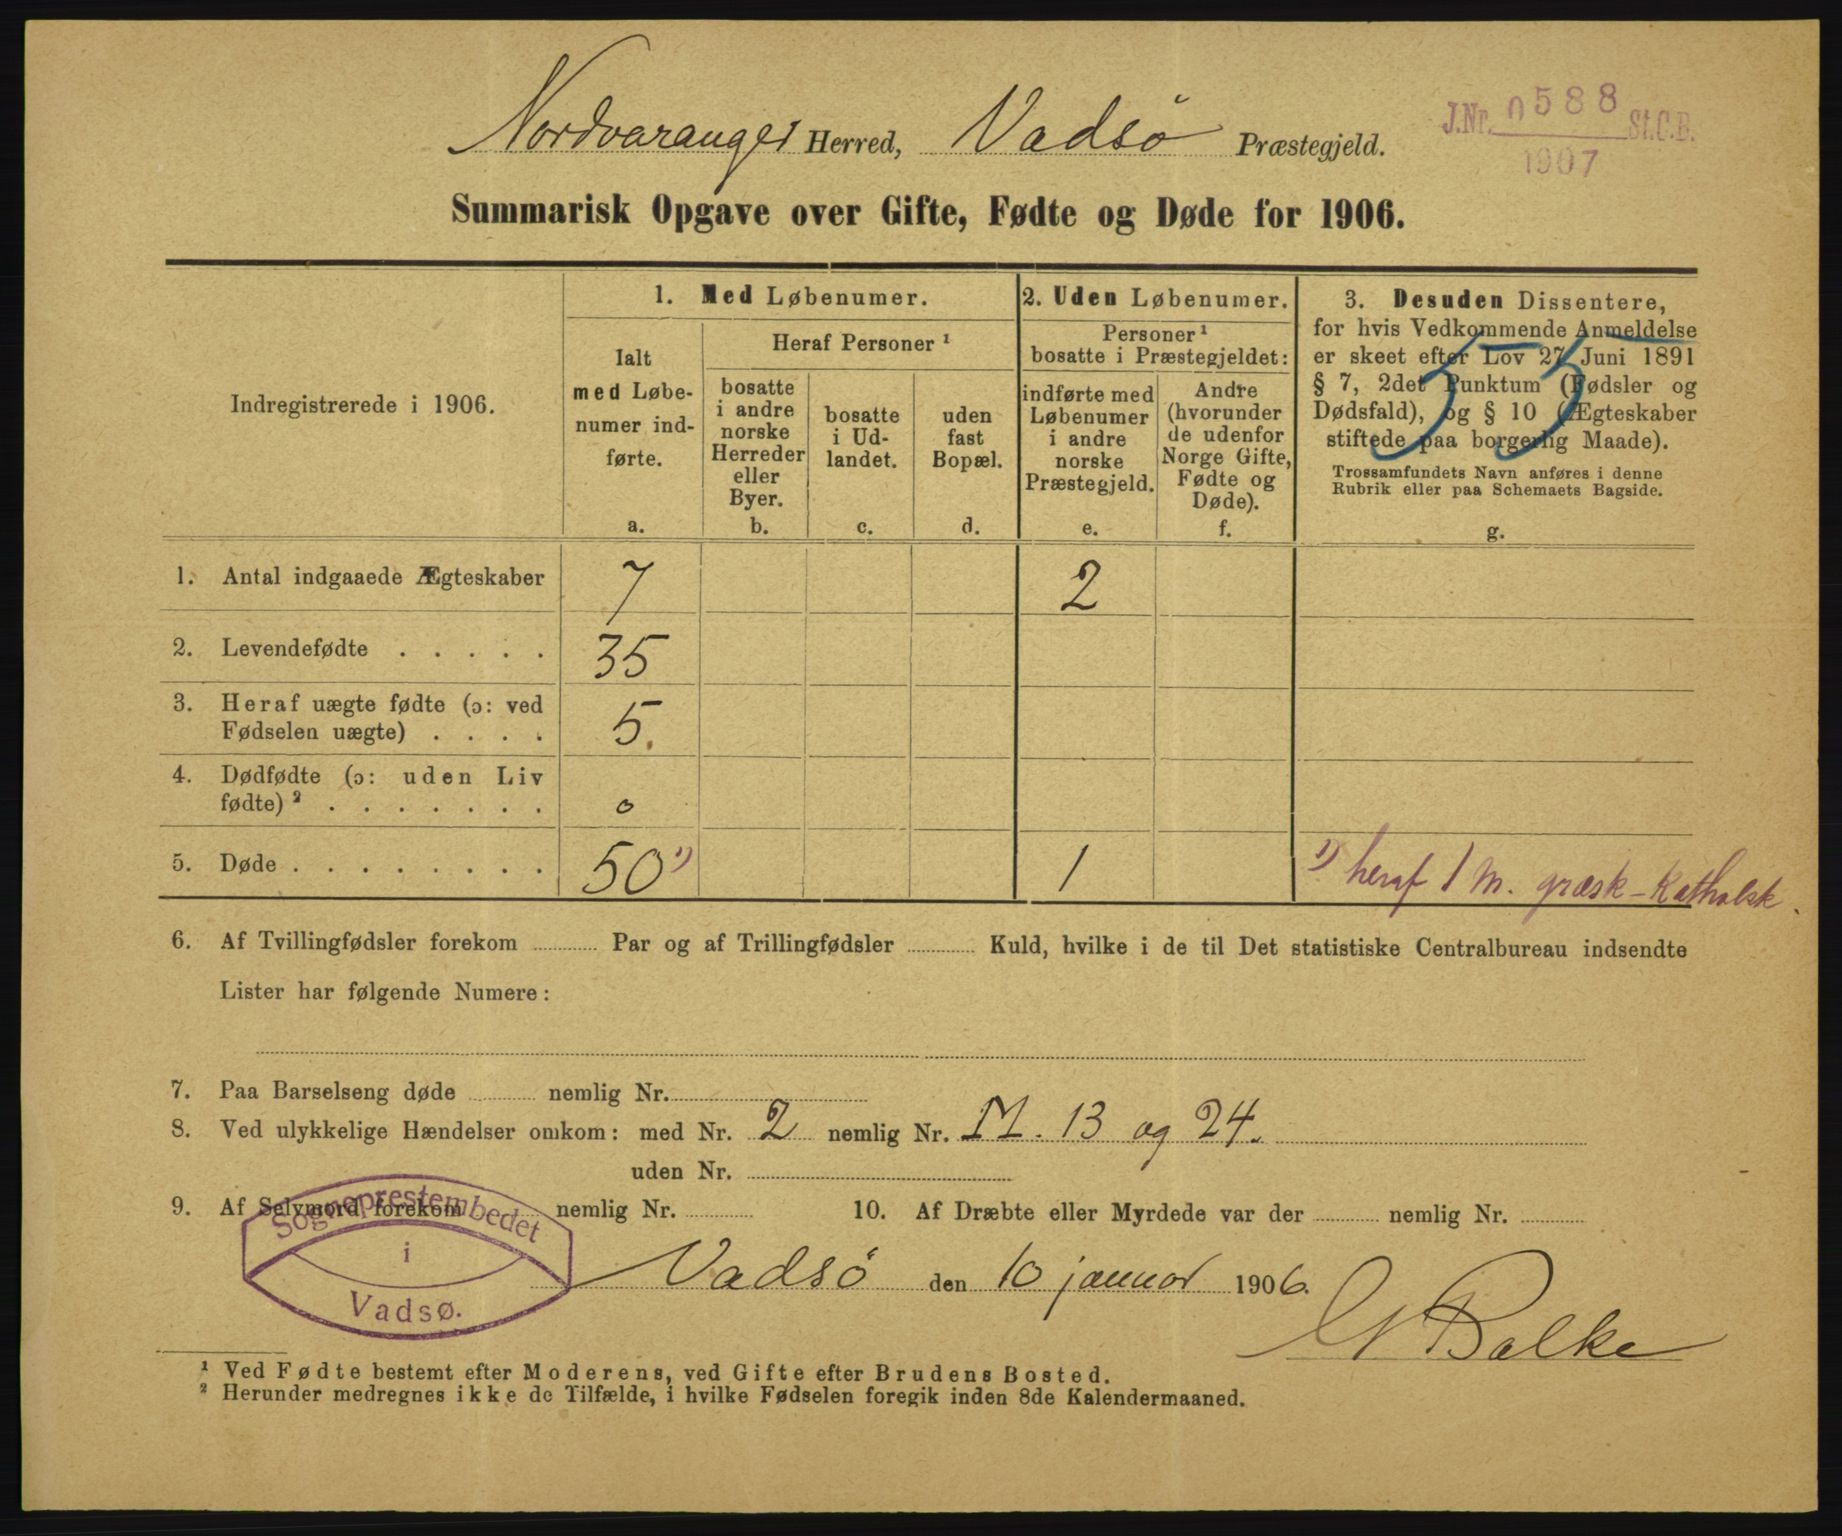 Nordvaranger Herred, Vadsö Præstegjeld.
J.Nr. 0588 St.C.B.
1907
Summarisk Opgave over Gifte, Fødte og Døde for 1906.
Indregistrerede i 1906.
1. Med Løbenumer.
Ialt
med Løbe-
numer ind-
førte.
a.
Heraf Personer ¹
bosatte
i andre
norske
Herreder
eller
Byer.
b.
bosatte
i Ud-
landet.
c.
uden
fast
Bopæl.
d.
2. Uden Løbenumer.
Personer ¹
bosatte i Præstegjeldet:
indførte med
Løbenumer
i andre
norske
Præstegjeld.
e.
Andre
(hvorunder
de udenfor
Norge Gifte,
Fødte og
Døde).
f.
3. Desuden Dissentere,
for hvis Vedkommende Anmeldelse
er skeet efter Lov 27 Juni 1891
§ 7, 2det Punktum (Fødsler og
Dødsfald), og § 10 (Ægteskaber
stiftede paa borgerlig Maade).
Trossamfundets Navn anføres i denne
Rubrik eller paa Schemaets Bagside.
g.
53
1. Antal indgaaede Ægteskaber 7 2
2. Levendefødte . . . . . 35
3. Heraf uægte fødte (ɔ: ved
Fødselen uægte) . . . . 5.
4. Dødfødte (ɔ: uden Liv
fødte) ² . . . . . . . 0
5. Døde . . . . . . . . 50 ¹) 1 ¹) heraf 1 M. græsk-katholsk.
6. Af Tvillingfødsler forekom ........ Par og af Trillingfødsler ........ Kuld, hvilke i de til Det statistiske Centralbureau indsendte
Lister har følgende Numere:
7. Paa Barselseng døde ........ nemlig Nr.
8. Ved ulykkelige Hændelser omkom: med Nr. 2 nemlig Nr. M. 13 og 24.
uden Nr.
9. Af Selvmord forekom ........ nemlig Nr. ........ 10. Af Dræbte eller Myrdede var der ........ nemlig Nr. ........
Sogneprestembedet
i
Vadsø.
Vadsö den 10 januar 1906.
Balke
¹ Ved Fødte bestemt efter Moderens, ved Gifte efter Brudens Bosted.
² Herunder medregnes ikke de Tilfælde, i hvilke Fødselen foregik inden 8de Kalendermaaned.